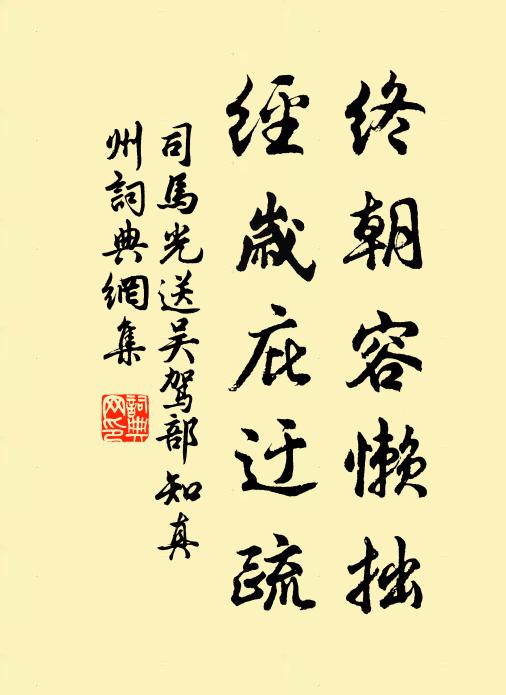 终朝容懒拙
經歲庇迂疏
司馬光送吴駕部知真
州詞典網集
詞典
网印